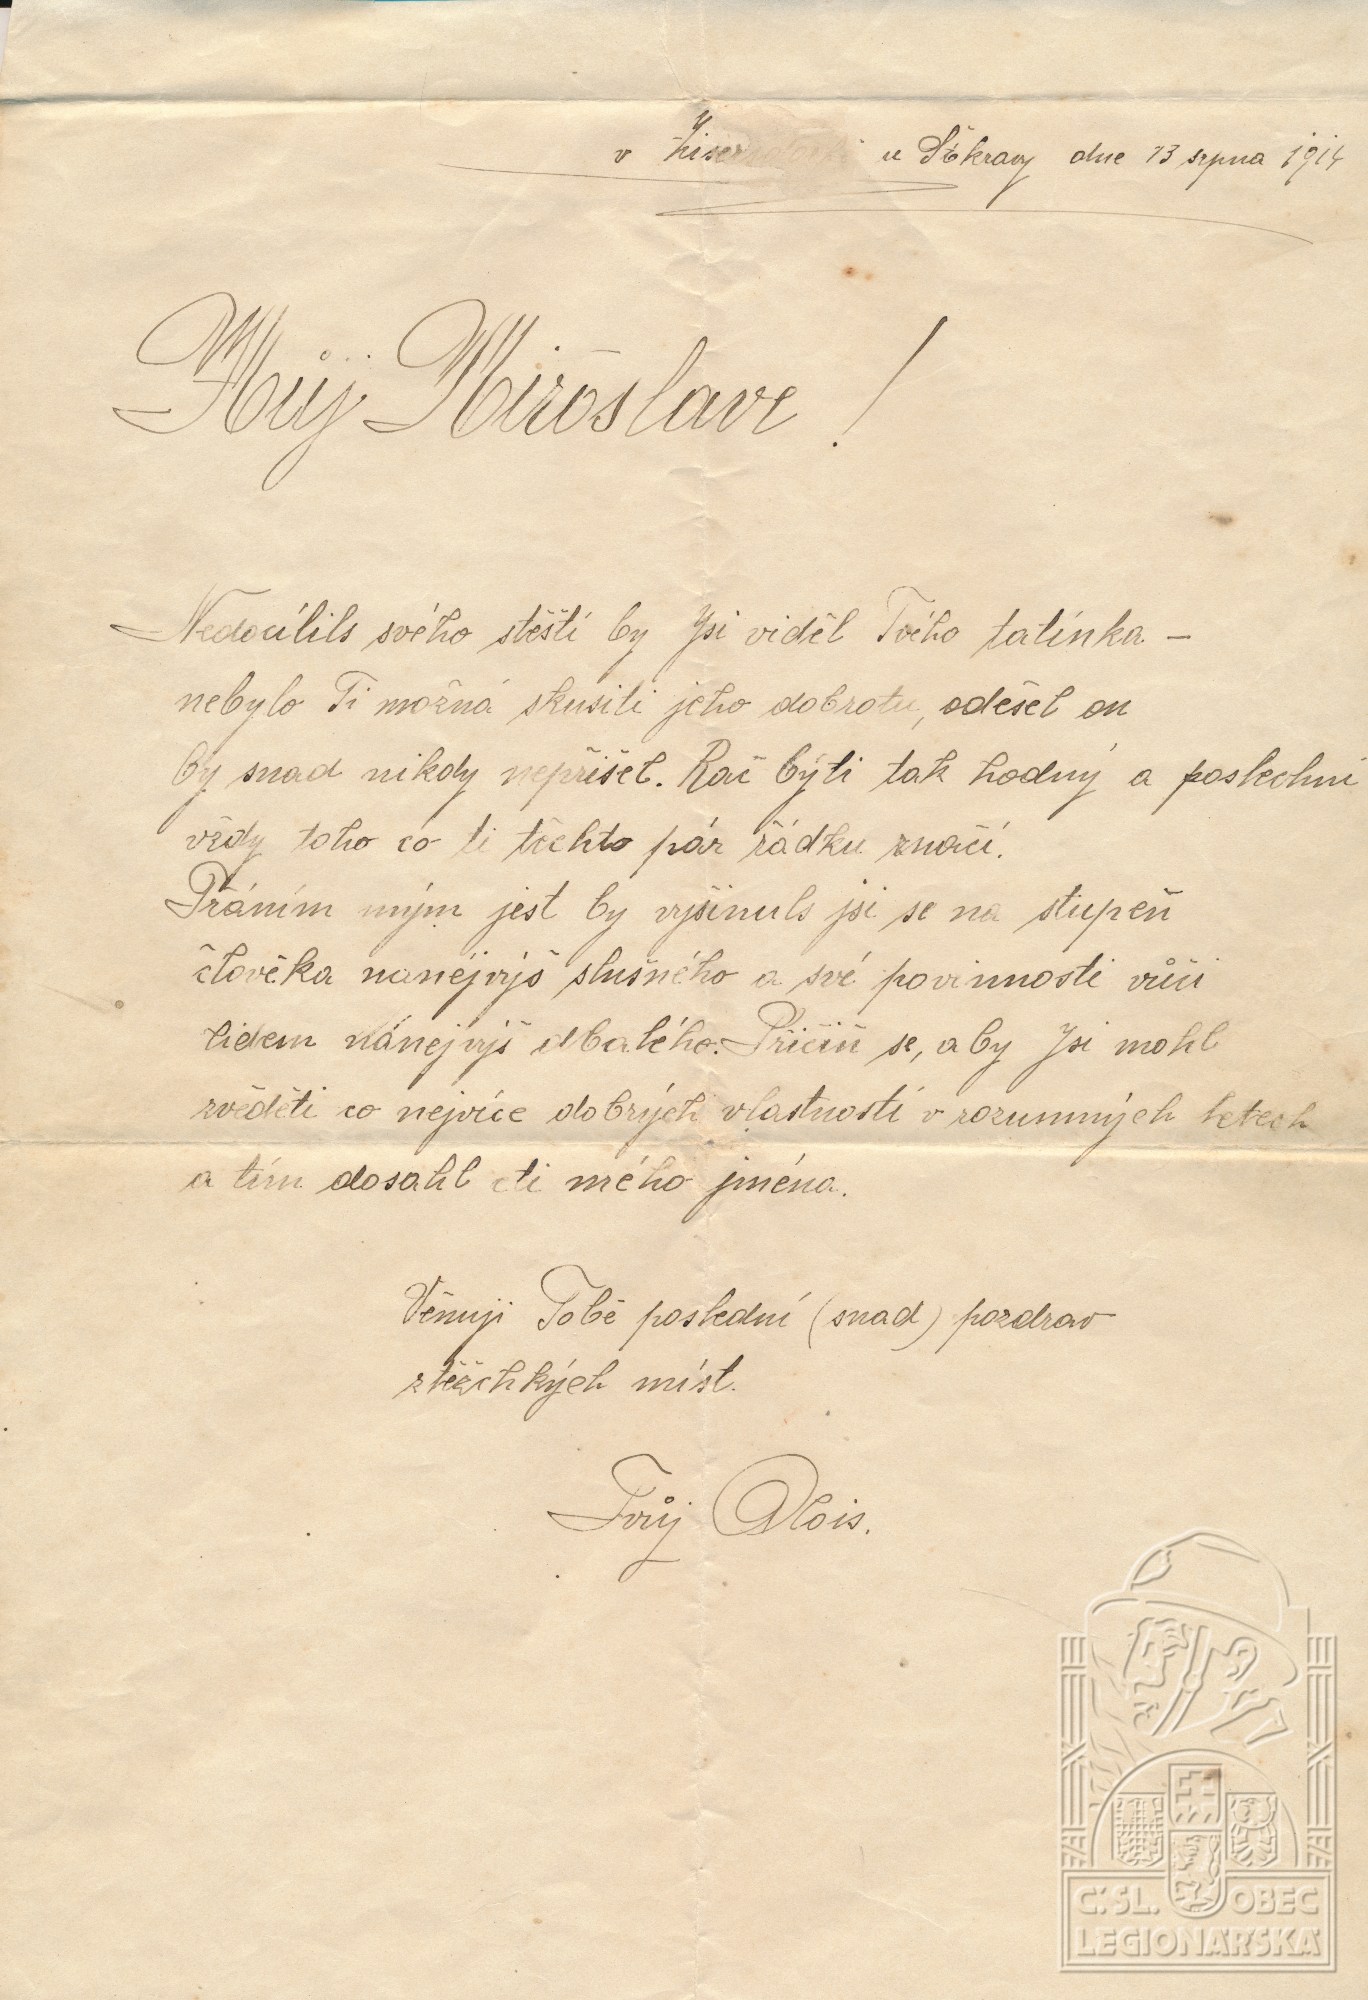 v u Stkravy dne 13 srpna 1914
Můj Miroslave!
Nedocílils svého stěští by Jsi viděl Tvého tatínka –
nebylo Ti možná skusiti jeho dobrotu, odešel on
by snad nikdy nepřišel. Rač býti tak hodný a poslechni
vždy toho co ti těchto pár řádku značí.
Přáním mým jest by vyšinuls jsi se na stupeň
člověka nanejvýš slušného a své povinnosti vůči
lidem nánejvýš dbalého. Přičiň se, aby Jsi mohl
zvěděti co nejvíce dobrých vlastností v rozumných letech
a tím dosáhl cti mého jména.
Věnuji Tobě poslední (snad) pozdrav
ztěžchkých míst.
Tvůj Alois.
Č.SL. OBEC
LEGIONÁŘSKÁ